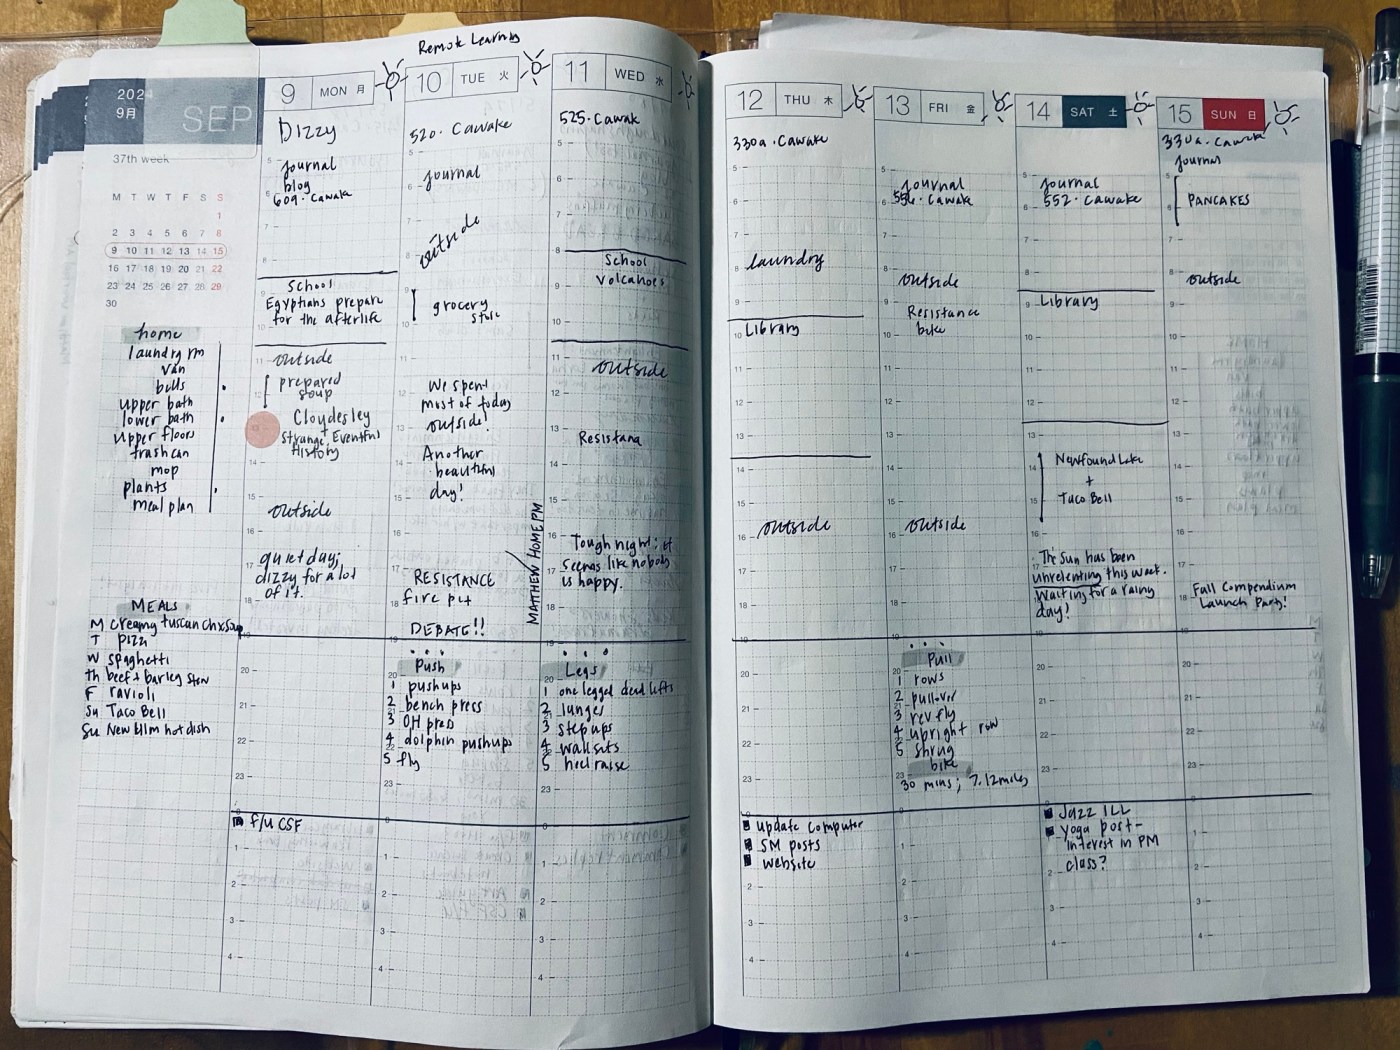 Remote Learning
2024
9月
SEP
37th week
M T W T F S S
1
2 3 4 5 6 7 8
9 10 11 12 13 14 15
16 17 18 19 20 21 22
23 24 25 26 27 28 29
30
home
laundry rm
van
bills
upper bath
lower bath
upper floors
trash can
mop
plants
meal plan
MEALS
M creamy tuscan chx soup
T pizza
W spaghetti
th beef + barley stew
F ravioli
Su Taco Bell
Su New Ulm hot dish
9 MON 月
Dizzy
journal
blog
609. Cawake
School
Egyptians prepare
for the afterlife
outside
prepared
soup
Cloudesley
+
Strange Eventful
History
outside
quiet day;
dizzy for a lot
of it.
f/u CSF
10 TUE 火
520. Cawake
journal
outside
grocery
store
We spent
most of today
outside!
Another
beautiful
day!
RESISTANCE
fire pit
DEBATE!!
Push
1 pushups
2 bench press
3 OH press
4 dolphin pushups
5 fly
11 WED 水
525. Cawak
School
Volcanoes
outside
Resistana
MATTHEW HOME PM
Tough night; it
seems like nobody
is happy.
Legs
1 one legged dead lifts
2 lunges
3 step ups
4 wall sits
5 heel raise
12 THU 木
330a. Cawake
laundry
Library
outside
update computer
SM posts
website
13 FRI 金
journal
556. Cawake
outside
Resistance
bike
outside
Pull
1 rows
2 pullover
3 rev fly
4 upright row
5 shrug
bike
30 mins; 7.12miles
14 SAT 土
journal
552. Cawake
Library
Newfound Lake
+
Taco Bell
The Sun has been
unrelenting this week.
Waiting for a rainy
day!
Jazz ILL
yoga post-
interest in PM
class?
15 SUN 日
330a. Cawake
journal
PANCAKES
outside
Fall Compendium
Launch Party!